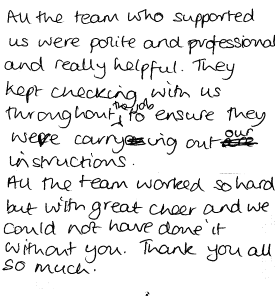 All the team who supported
us were polite and professional
and really helpful. They
kept checking with us
throughout the job to ensure they
were carrying out our
instructions.
All the team worked so hard
but with great cheer and we
could not have done it
without you. Thank you all
so much.